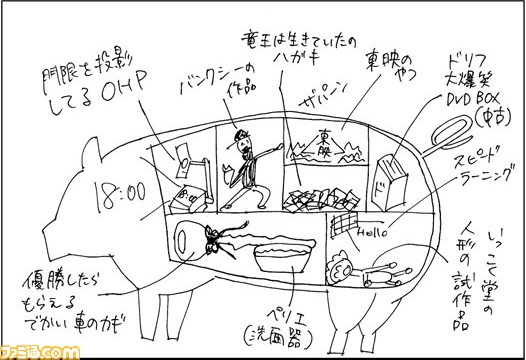 門限を投影
してるOHP
バンクシーの
作品
竜王は生きていたの
ハガキ
ザパーン
東映の
やつ
ドリフ
大爆笑
DVD BOX
(中古)
スピード
ラーニング
いっこく堂の
人形の試作品
ペリエ
(洗面器)
優勝したら
もらえる
でかい車のカギ
18:00
18:00
東映
ド
Hello
ファミ通.com